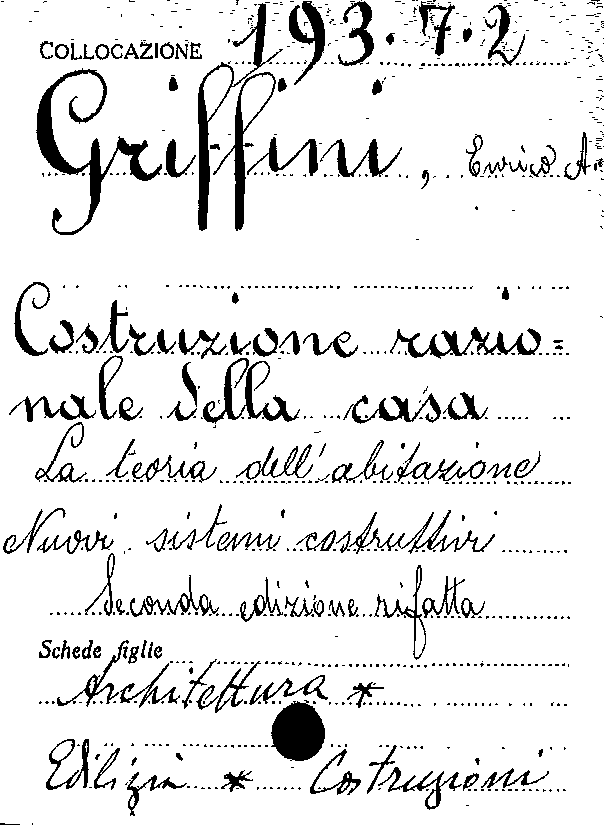 COLLOCAZIONE 193.7.2
Griffini, Enrico A.
Costruzione razio=
nale della casa
La teoria dell'abitazione
Nuovi sistemi costruttivi
Seconda edizione rifatta
Schede figlie
Architettura *
Edilizia * Costruzioni